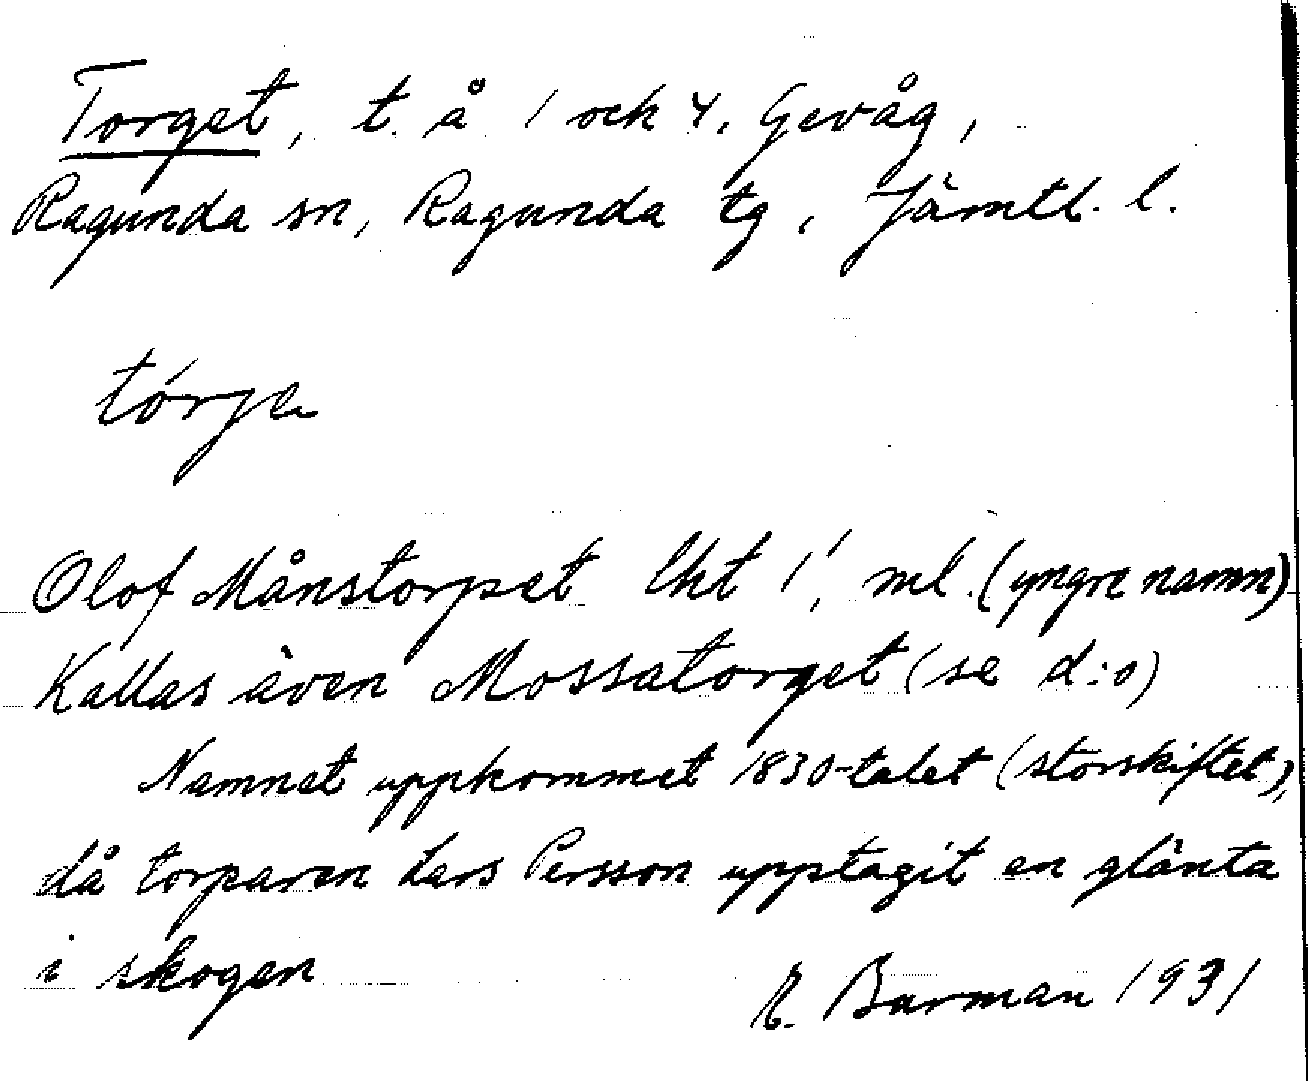 Torget, t. å 1 och 4. Gevåg,
Ragunda sn, Ragunda tg, Jämtl. l.
tórje
Olof Månstorpet lht 1', ml. (yngre namn)
Kallas även Mossatorget (se d:o)
Namnet uppkommet 1830-talet (storskiftet),
då torparen Lars Persson upptagit en glänta
i skogen
E. Burman 1931